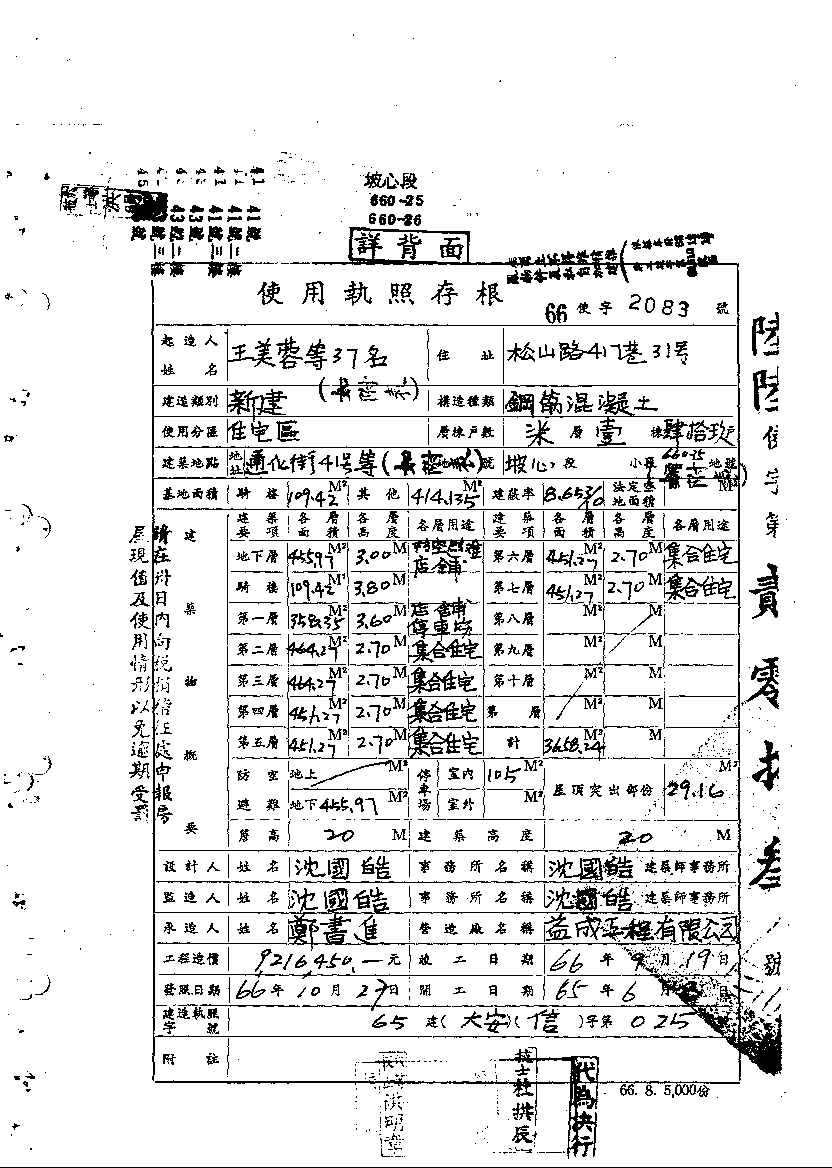 坡心段
660-25
660-26
詳背面
使用執照存根
66 使字 2083 號
起造人姓名 王美蓉等37名 住址 松山路417巷31号
建造類別 新建 構造種類 鋼筋混凝土
使用分區 住宅區 層棟戶數 柒層壹棟肆拾玖戶
建築地點 地址 通化街41号等 號 坡心段 小段 660-25 地號
基地面積 騎樓 109.42 M² 其他 414.135 M² 建蔽率 法定空地面積 M²
建築要項 各層面積 各層高度 各層用途 建築要項 各層面積 各層高度 各層用途
地下層 455.97 M² 3.00 M 店舖 第六層 451.27 M² 2.70 M 集合住宅
騎樓 109.42 M² 3.80 M 第七層 451.27 M² 2.70 M 集合住宅
第一層 358.35 M² 3.60 M 店舖 停車場 第八層 M² M
第二層 464.27 M² 2.70 M 集合住宅 第九層 M² M
第三層 464.27 M² 2.70 M 集合住宅 第十層 M² M
第四層 451.27 M² 2.70 M 集合住宅 第 層 M² M
第五層 451.27 M² 2.70 M 集合住宅 計 3658.24 M² M
建築物概要
防空避難 地上 M² 地下 455.97 M² 停車場 室內 105 M² 室外 M² 屋頂突出部份 29.16 M²
簷高 20 M 建築高度 20 M
設計人 姓名 沈國皓 事務所名稱 沈國皓 建築師事務所
監造人 姓名 沈國皓 事務所名稱 沈國皓 建築師事務所
承造人 姓名 鄭書進 營造廠名稱 益成工程有限公司
工程造價 9,216,450.一元 竣工日期 66年9月19日
發照日期 66年10月27日 開工日期 65年6月 日
建造執照字號 65 建(大安)(信)字第 025 號
附註
66. 8. 5,000份
代為決行
技士杜拱辰
請在卅日內向稅捐稽征處申報房
屋現值及使用情形以免逾期受罰
陸陸使字第貳零捌叁號